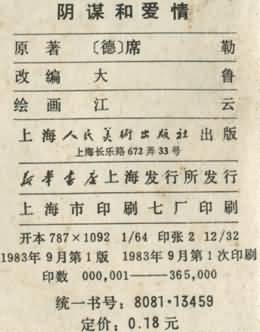 阴谋和爱情
原著 〔德〕席勒
改编 大鲁
绘画 江云
上海人民美術出版社出版
上海长乐路672弄33号
新华書店上海发行所发行
上海市印刷七厂印刷
开本787×1092 1/64 印张2 12/32
1983年9月第1版 1983年9月第1次印刷
印数 000,001——365,000
统一书号：8081·13459
定价：0.18元